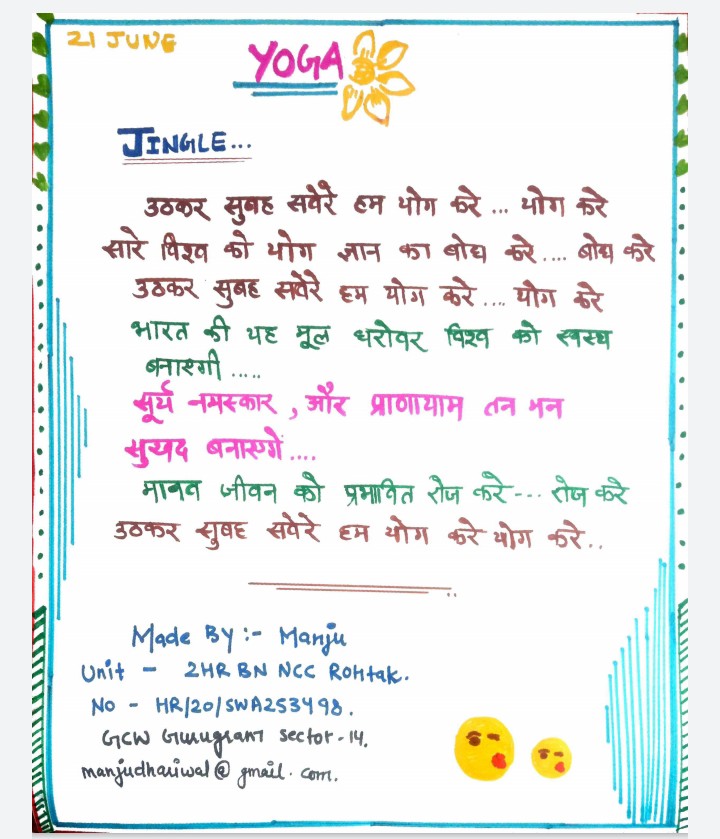 21 JUNE
YOGA
JINGLE...
उठकर सुबह सवेरे हम योग करे ... योग करे
सारे विश्व को योग ज्ञान का बोध करे .... बोध करे
उठकर सुबह सवेरे हम योग करे .... योग करे
भारत की यह मूल धरोवर विश्व को स्वस्थ
बनाएगी .....
सूर्य नमस्कार , और प्राणायाम तन मन
सुखद बनाएगे ....
मानव जीवन को प्रभावित रोज करे --- रोज करे
उठकर सुबह सवेरे हम योग करे योग करे ..
Made By :- Manju
Unit - 2HR BN NCC Rohtak.
No - HR/20/SWA253498.
GCW Gurugram Sector-14.
manjudhariwal@gmail.com.